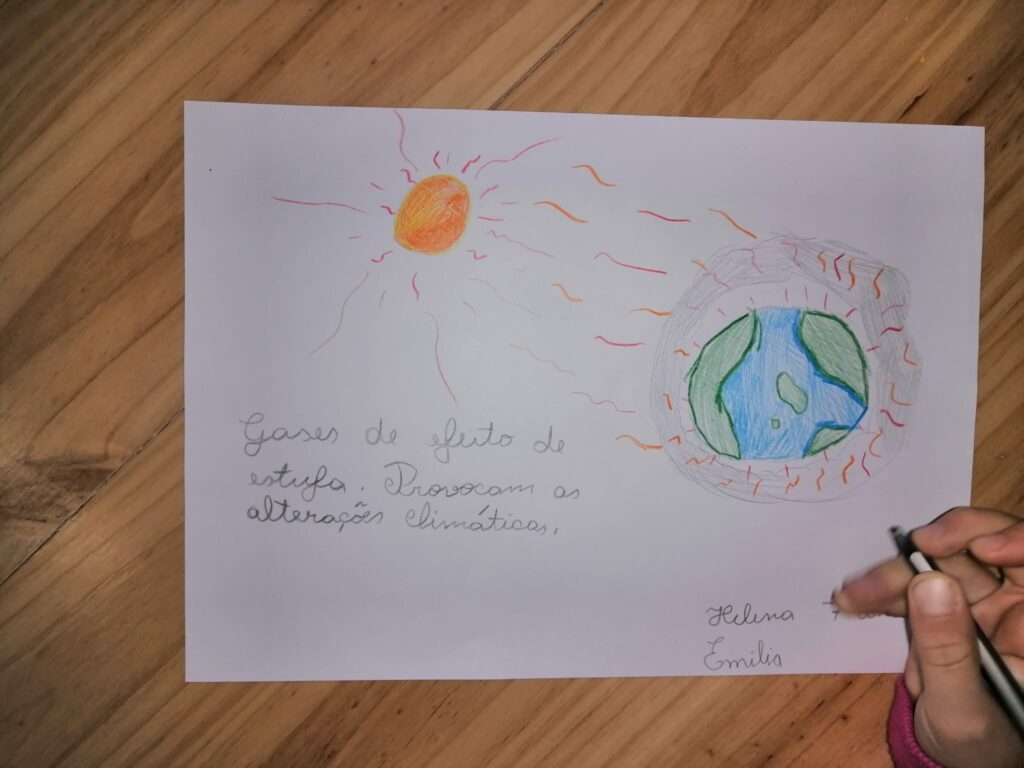 Gases de efeito de
estufa. Provocam as
alterações climáticas.
Helena 7
Emilia